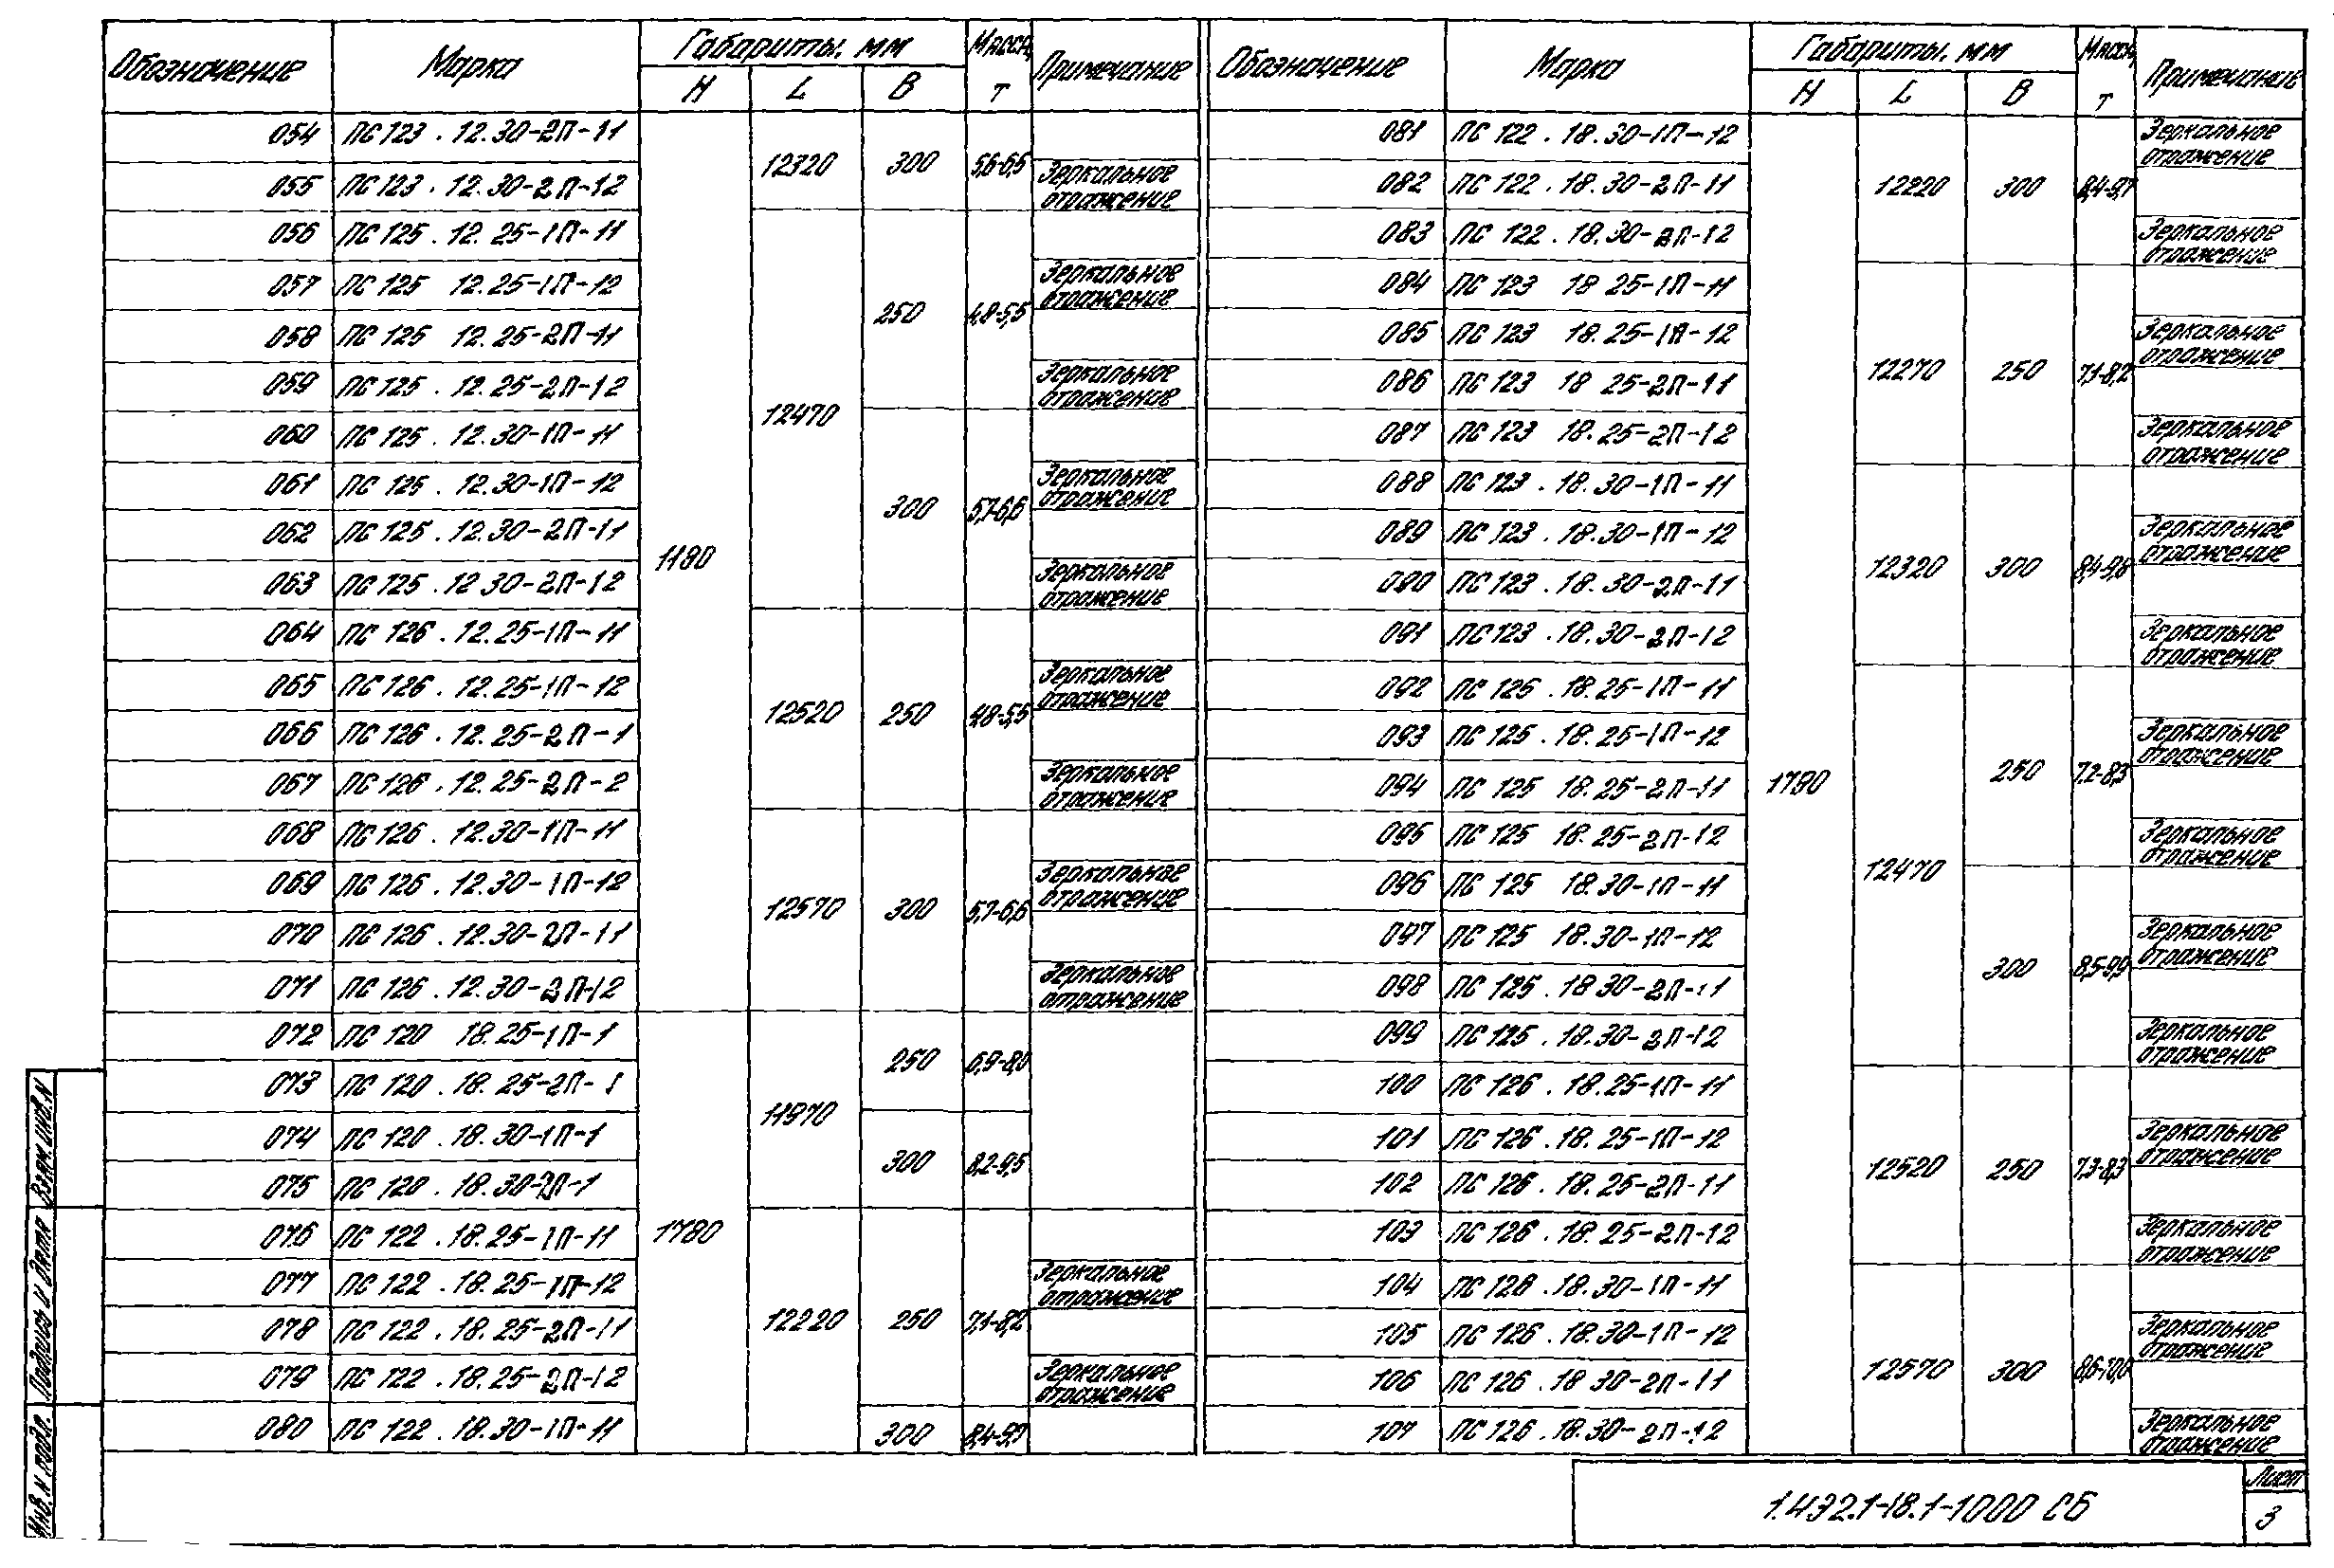 Обозначение Марка Габариты. мм Масса, т Примечание
H L B
054 ПС 123 . 12.30-2П-11 1180 12320 300 5,6-6,5
055 ПС 123 . 12.30-2П-12 Зеркальное отражение
056 ПС 125 . 12. 25-1П-11 12470 250 4,8-5,5
057 ПС 125 12.25-1П-12 Зеркальное отражение
058 ПС 125 12.25-2П-11
059 ПС 125 . 12.25-2П-12 Зеркальное отражение
060 ПС 125 . 12.30-1П-11 300 5,7-6,6
061 ПС 125 . 12.30-1П-12 Зеркальное отражение
062 ПС 125 . 12.30-2П-11
063 ПС 125 . 12 30-2П-12 Зеркальное отражение
064 ПС 126 . 12.25-1П-11 12520 250 4,8-5,5
065 ПС 126 . 12.25-1П-12 Зеркальное отражение
066 ПС 126 . 12. 25-2П-1
067 ПС 126 . 12.25-2П-2 Зеркальное отражение
068 ПС 126 . 12.30-1П-11 12570 300 5,7-6,6
069 ПС 126 . 12.30-1П-12 Зеркальное отражение
070 ПС 126 . 12.30-2П-11
071 ПС 126 . 12.30-2П-12 Зеркальное отражение
072 ПС 120 18.25-1П-1 1780 11970 250 6,9-8,0
073 ПС 120 . 18. 25-2П-1
074 ПС 120 . 18.30-1П-1 300 8,2-9,5
075 ПС 120 . 18.30-2П-1
076 ПС 122 . 18.25-1П-11 12220 250 7,1-8,2
077 ПС 122 . 18.25-1П-12 Зеркальное отражение
078 ПС 122 . 18. 25-2П-11
079 ПС 122 . 18.25-2П-12 Зеркальное отражение
080 ПС 122 . 18.30-1П-11 300 8,4-9,7
Обозначение Марка Габариты. мм Масса, т Примечание
H L B
081 ПС 122 . 18.30-1П-12 1780 12220 300 8,4-9,7 Зеркальное отражение
082 ПС 122 . 18.30-2П-11
083 ПС 122 . 18.30-2П-12 Зеркальное отражение
084 ПС 123 18 25-1П-11 12270 250 7,1-8,2
085 ПС 123 18.25-1П-12 Зеркальное отражение
086 ПС 123 18 25-2П-11
087 ПС 123 18.25-2П-12 Зеркальное отражение
088 ПС 123 . 18.30-1П-11 12320 300 8,4-9,8
089 ПС 123 . 18.30-1П-12 Зеркальное отражение
090 ПС 123 . 18.30-2П-11
091 ПС 123 . 18.30-2П-12 Зеркальное отражение
092 ПС 125 . 18.25-1П-11 12470 250 7,2-8,3
093 ПС 125 . 18.25-1П-12 Зеркальное отражение
094 ПС 125 18.25-2П-11
095 ПС 125 18.25-2П-12 Зеркальное отражение
096 ПС 125 18.30-1П-11 300 8,5-9,9
097 ПС 125 18.30-1П-12 Зеркальное отражение
098 ПС 125 . 18 30-2П-11
099 ПС 125 . 18.30-2П-12 Зеркальное отражение
100 ПС 126 . 18.25-1П-11 12520 250 7,3-8,3
101 ПС 126 . 18.25-1П-12 Зеркальное отражение
102 ПС 126 . 18.25-2П-11
103 ПС 126 . 18.25-2П-12 Зеркальное отражение
104 ПС 126 . 18.30-1П-11 12570 300 8,6-10,0
105 ПС 126 . 18.30-1П-12 Зеркальное отражение
106 ПС 126 . 18 30-2П-11
107 ПС 126 . 18.30-2П-12 Зеркальное отражение
Инв. N подл. Подпись и дата Взам. инв. N
1.432.1-18.1-1000 СБ
Лист
3